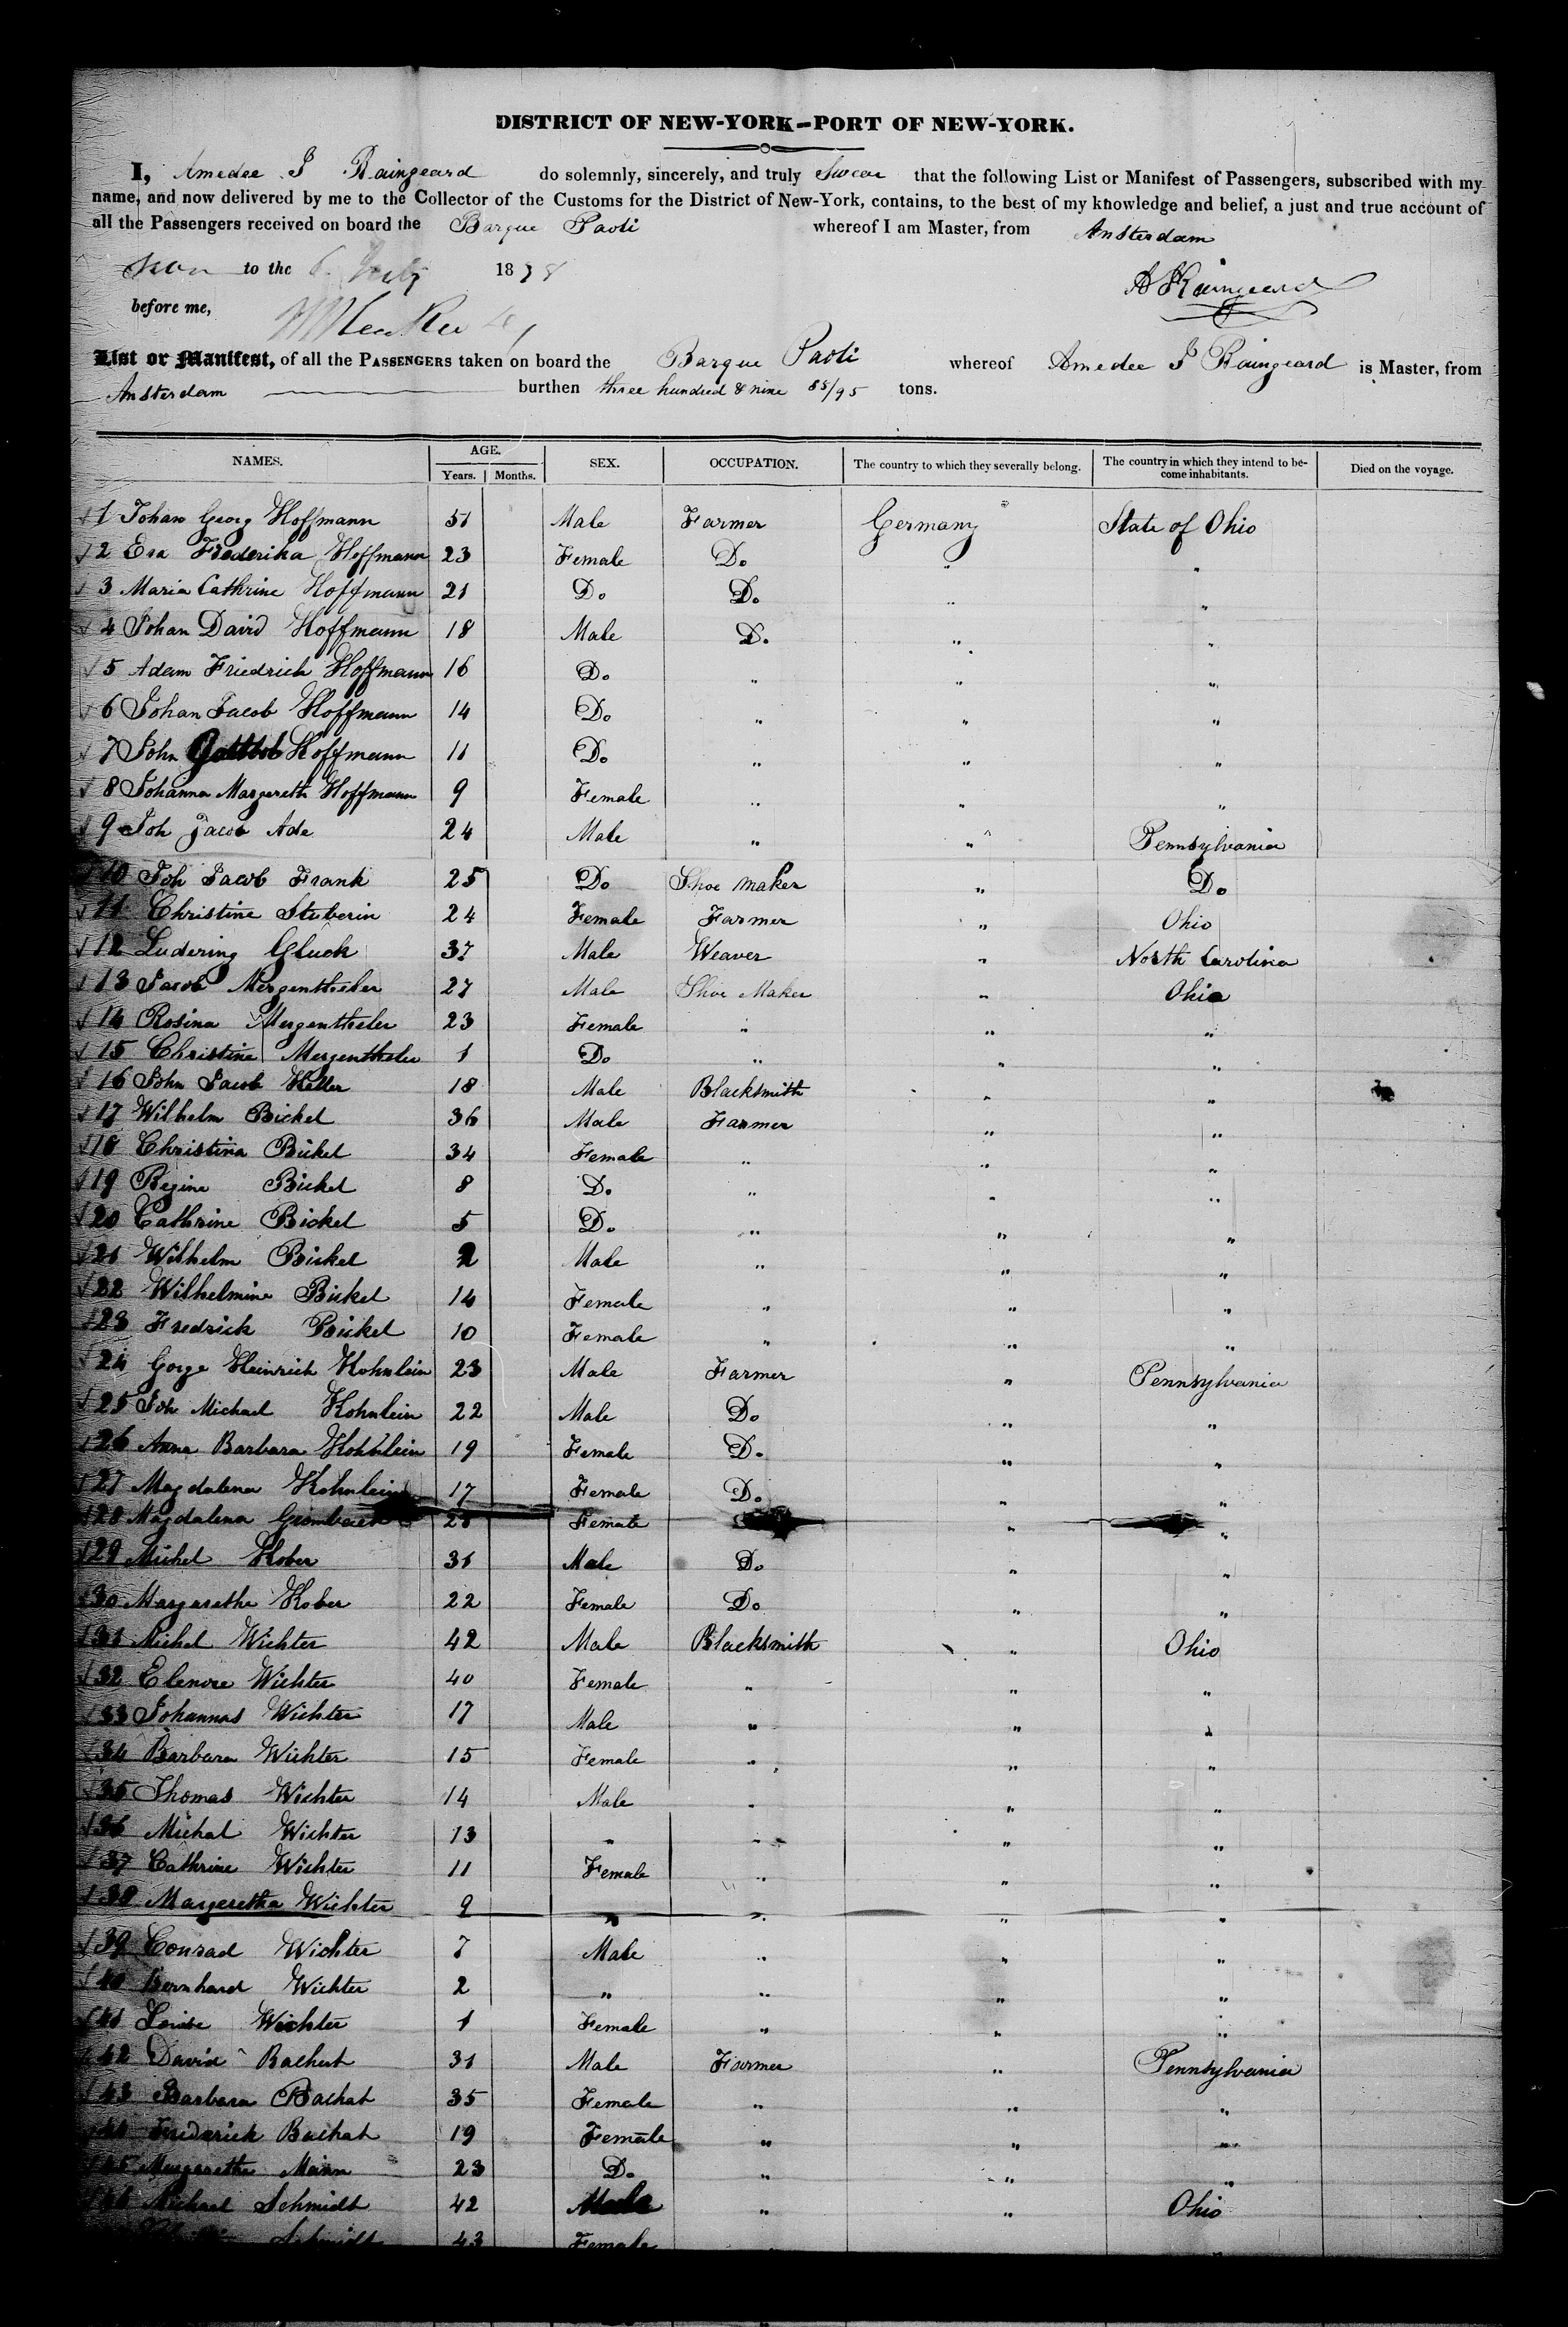 DISTRICT OF NEW-YORK—PORT OF NEW-YORK.
I, Amedee J Raingeard do solemnly, sincerely, and truly Swear that the following List or Manifest of Passengers, subscribed with my
name, and now delivered by me to the Collector of the Customs for the District of New-York, contains, to the best of my knowledge and belief, a just and true account of
all the Passengers received on board the Barque Paoli whereof I am Master, from Amsterdam
to the 6 July 1838
A J Raingeard
before me,
List or Manifest, of all the PASSENGERS taken on board the Barque Paoli whereof Amedee J Raingeard is Master, from
Amsterdam burthen three hundred & nine 85/95 tons.
NAMES. AGE. Years. Months. SEX. OCCUPATION. The country to which they severally belong. The country in which they intend to become inhabitants. Died on the voyage.
1 Johan Georg Hoffmann 51 Male Farmer Germany State of Ohio
2 Eva Frederika Hoffmann 23 Female Do " "
3 Maria Cathrine Hoffmann 21 Do Do " "
4 Johan David Hoffmann 18 Male Do " "
5 Adam Friedrich Hoffmann 16 Do " " "
6 Johan Jacob Hoffmann 14 Do " " "
7 John Gottlob Hoffmann 11 Do " " "
8 Johanna Margareth Hoffmann 9 Female " " "
9 Joh Jacob Ade 24 Male " " Pennsylvania
10 Joh Jacob Frank 25 Do Shoe maker " Do
11 Christine Stuberin 24 Female Farmer " Ohio
12 Ludering Gluck 37 Male Weaver " North Carolina
13 Jacob Mergentheler 27 Male Shoe Maker " Ohio
14 Rosina Mergentheler 23 Female " " "
15 Christine Mergentheler 1 Do " " "
16 John Jacob Keller 18 Male Blacksmith " "
17 Wilhelm Bickel 36 Male Farmer " "
18 Christina Bickel 34 Female " " "
19 Regine Bickel 8 Do " " "
20 Cathrine Bickel 5 Do " " "
21 Wilhelm Bickel 2 Male " " "
22 Wilhelmine Bickel 14 Female " " "
23 Fredrick Bickel 10 Female " " "
24 Gorge Heinrich Kohnlein 23 Male Farmer " Pennsylvania
25 Joh Michael Kohnlein 22 Male Do " "
26 Anna Barbara Kohnlein 19 Female Do " "
27 Magdalena Kohnlein 17 Female Do " "
28 Magdalena Female " "
29 Michel Kober 31 Male Do " "
30 Margarethe Kober 22 Female Do " "
31 Michel Wichter 42 Male Blacksmith " Ohio
32 Elenore Wichter 40 Female " " "
33 Johannas Wichter 17 Male " " "
34 Barbara Wichter 15 Female " " "
35 Thomas Wichter 14 Male " " "
36 Michal Wichter 13 " " " "
37 Cathrine Wichter 11 Female " " "
38 Margeretha Wichter 9 " " " "
39 Conrad Wichter 7 Male " " "
40 Bernhard Wichter 2 " " " "
41 Louise Wichter 1 Female " " "
42 David Bachert 31 Male Farmer " Pennsylvania
43 Barbara Bachat 35 Female " " "
44 Frederick Bachat 19 Female " " "
45 Margarethe Mann 23 Do " " "
46 Michael Schmidt 42 Male " " Ohio
Schmidt 43 Female " "